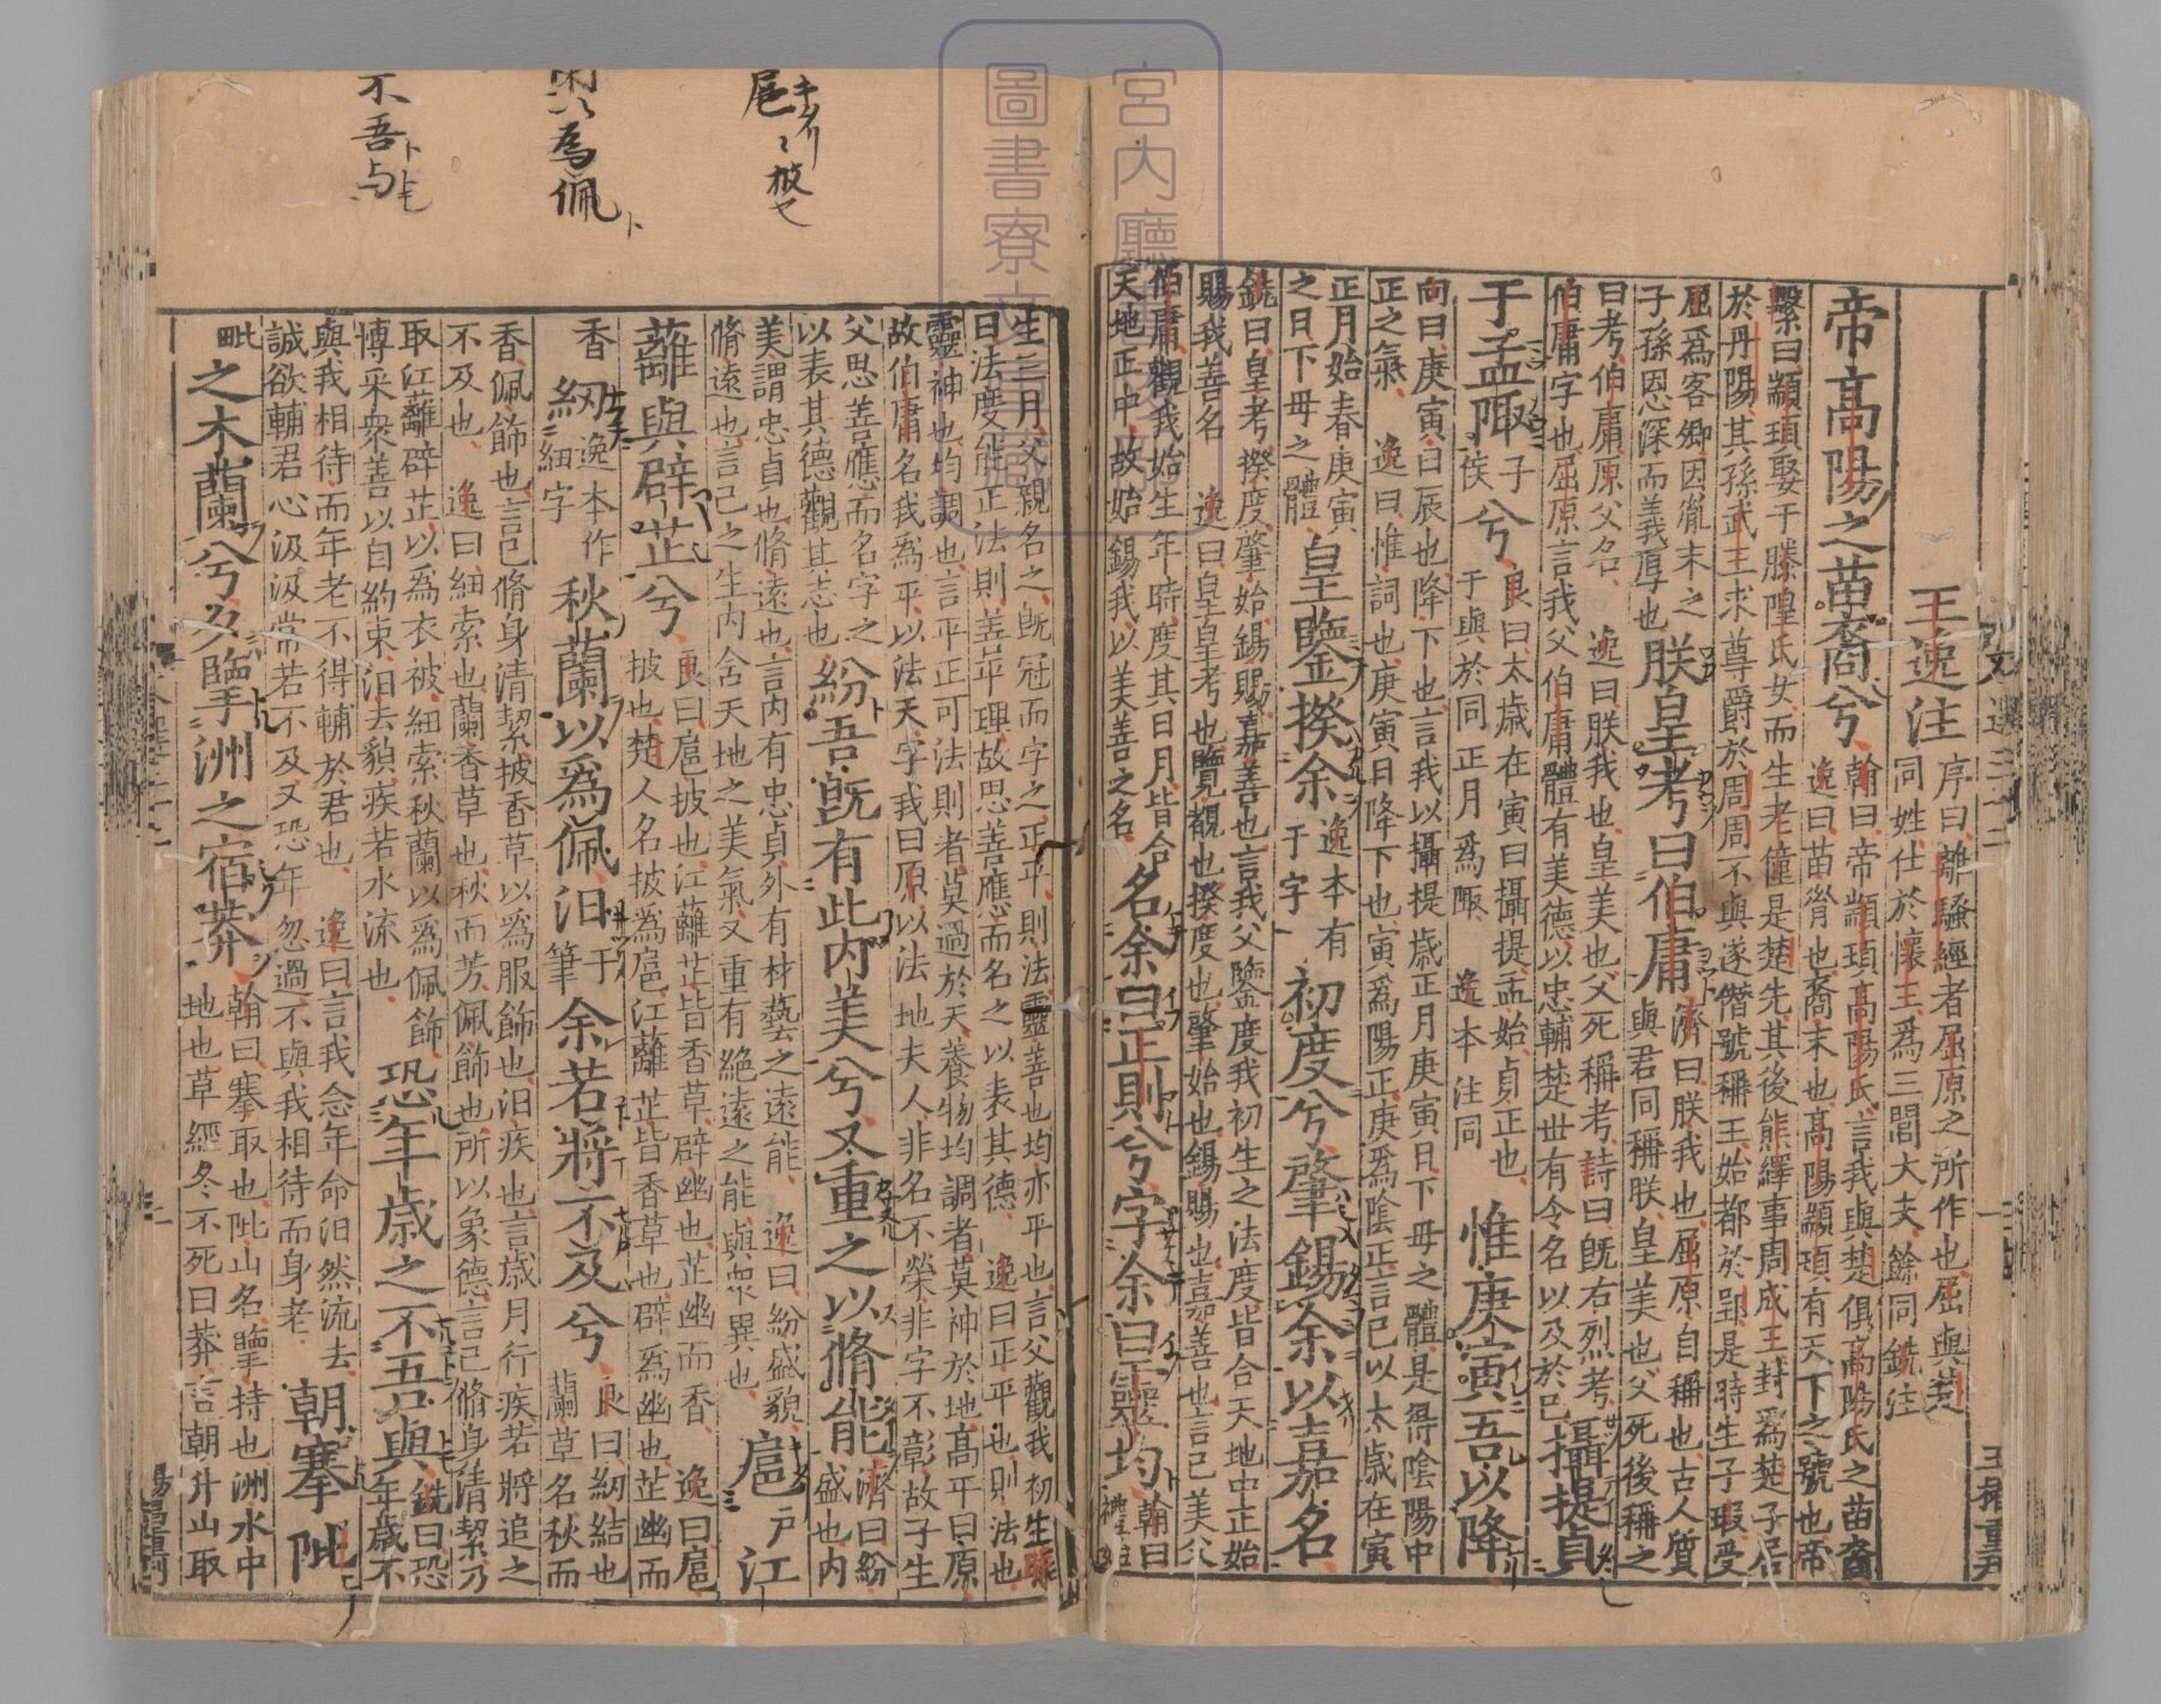 王逸注
序曰離騷經者屈原之所作也屈與楚
同姓仕於懷王爲三閭大夫餘同銑注
帝高陽之苗裔兮
翰曰帝顓頊高陽氏言我與楚俱高陽氏之苗裔
逸曰苗胄也裔末也高陽顓頊有天下之號也帝
繫曰顓頊娶于騰隍氏女而生老僮是楚先其後熊繹事周成王封爲楚子居
於丹陽其孫武王求尊爵於周周不與遂僭號稱王始都於郢是時生子瑕受
屈爲客卿因胤末之
子孫恩深而義厚也
朕皇考曰伯庸
濟曰朕我也屈原自稱也古人質
與君同稱朕皇美也父死後稱之
曰考伯庸原父名 逸曰朕我也皇美也父死稱考詩曰旣右烈考
伯庸字也屈原言我父伯庸體有美德以忠輔楚世有令名以及於己
攝提貞
于孟陬
子侯
兮
良曰太歳在寅曰攝提孟始貞正也
于與於同正月爲陬 逸本注同
惟庚寅吾以降
向曰庚寅日辰也降下也言我以攝提歳正月庚寅日下母之體是得陰陽中
正之氣 逸曰惟詞也庚寅日降下也寅爲陽正庚爲陰正言己以太歳在寅
正月始春庚寅
之日下母之體
皇鑒揆余
逸本有
于字
初度兮肇錫余以嘉名
銑曰皇考揆度肇始錫賜嘉善也言我父鑒度我初生之法度皆合天地中正始
賜我善名 逸曰皇皇考也覽觀也揆度也肇始也錫賜也嘉善也言己美父
伯庸觀我始生年時度其日月皆合
天地正中故始錫我以美善之名
名余曰正則兮字余曰靈均
翰曰
禮
生三月父親名之旣冠而字之正平則法靈善也均亦平也言父觀我初生
曰法度能正法則善平理故思善應而名之以表其德 逸曰正平也則法也
靈神也均調也言平正可法則者莫過於天養物均調者莫神於地高平曰原
故伯庸名我爲平以法天字我曰原以法地夫人非名不榮非字不彰故子生
父思善應而名字之
以表其德觀其志也
紛吾旣有此內美兮又重之以脩能
濟曰紛
盛也內
美謂忠貞也脩遠也言内有忠貞外有材藝之遠能 逸曰紛盛貌
脩遠也言己之生内含天地之美氣又重有絶遠之能與衆異也
扈
戸
江
蘺與辟芷兮
良曰扈披也江蘺芷皆香草辟幽也芷幽而香 逸曰扈
披也楚人名披爲扈江蘺芷皆香草也辟爲幽也芷幽而
香
紉
逸本作
細字
秋蘭以爲佩汨
于筆
余若將不及兮
良曰紉結也
蘭草名秋而
香佩飾也言己脩身清絜披香草以爲服飾也汨疾也言歳月行疾若將追之
不及也 逸曰紉索也蘭香草也秋而芳佩飾也所以象德言己脩身清絜乃
取江蘺辟芷以爲衣被紉索秋蘭以爲佩飾
博采衆善以自約束汨去貌疾若水流也
恐年歳之不吾與
銑曰恐
年歳不
與我相待而年老不得輔於君也 逸曰言我念年命汨然流去
誠欲輔君心汲汲常若不及又恐年忽過不與我相待而身老
朝搴阰
毗
之木蘭兮夕擥洲之宿莽
翰曰搴取也阰山名擥持也洲水中
地也草經冬不死曰莽言朝升山取
扈
以爲佩
不吾与
宮内廳
圖書寮